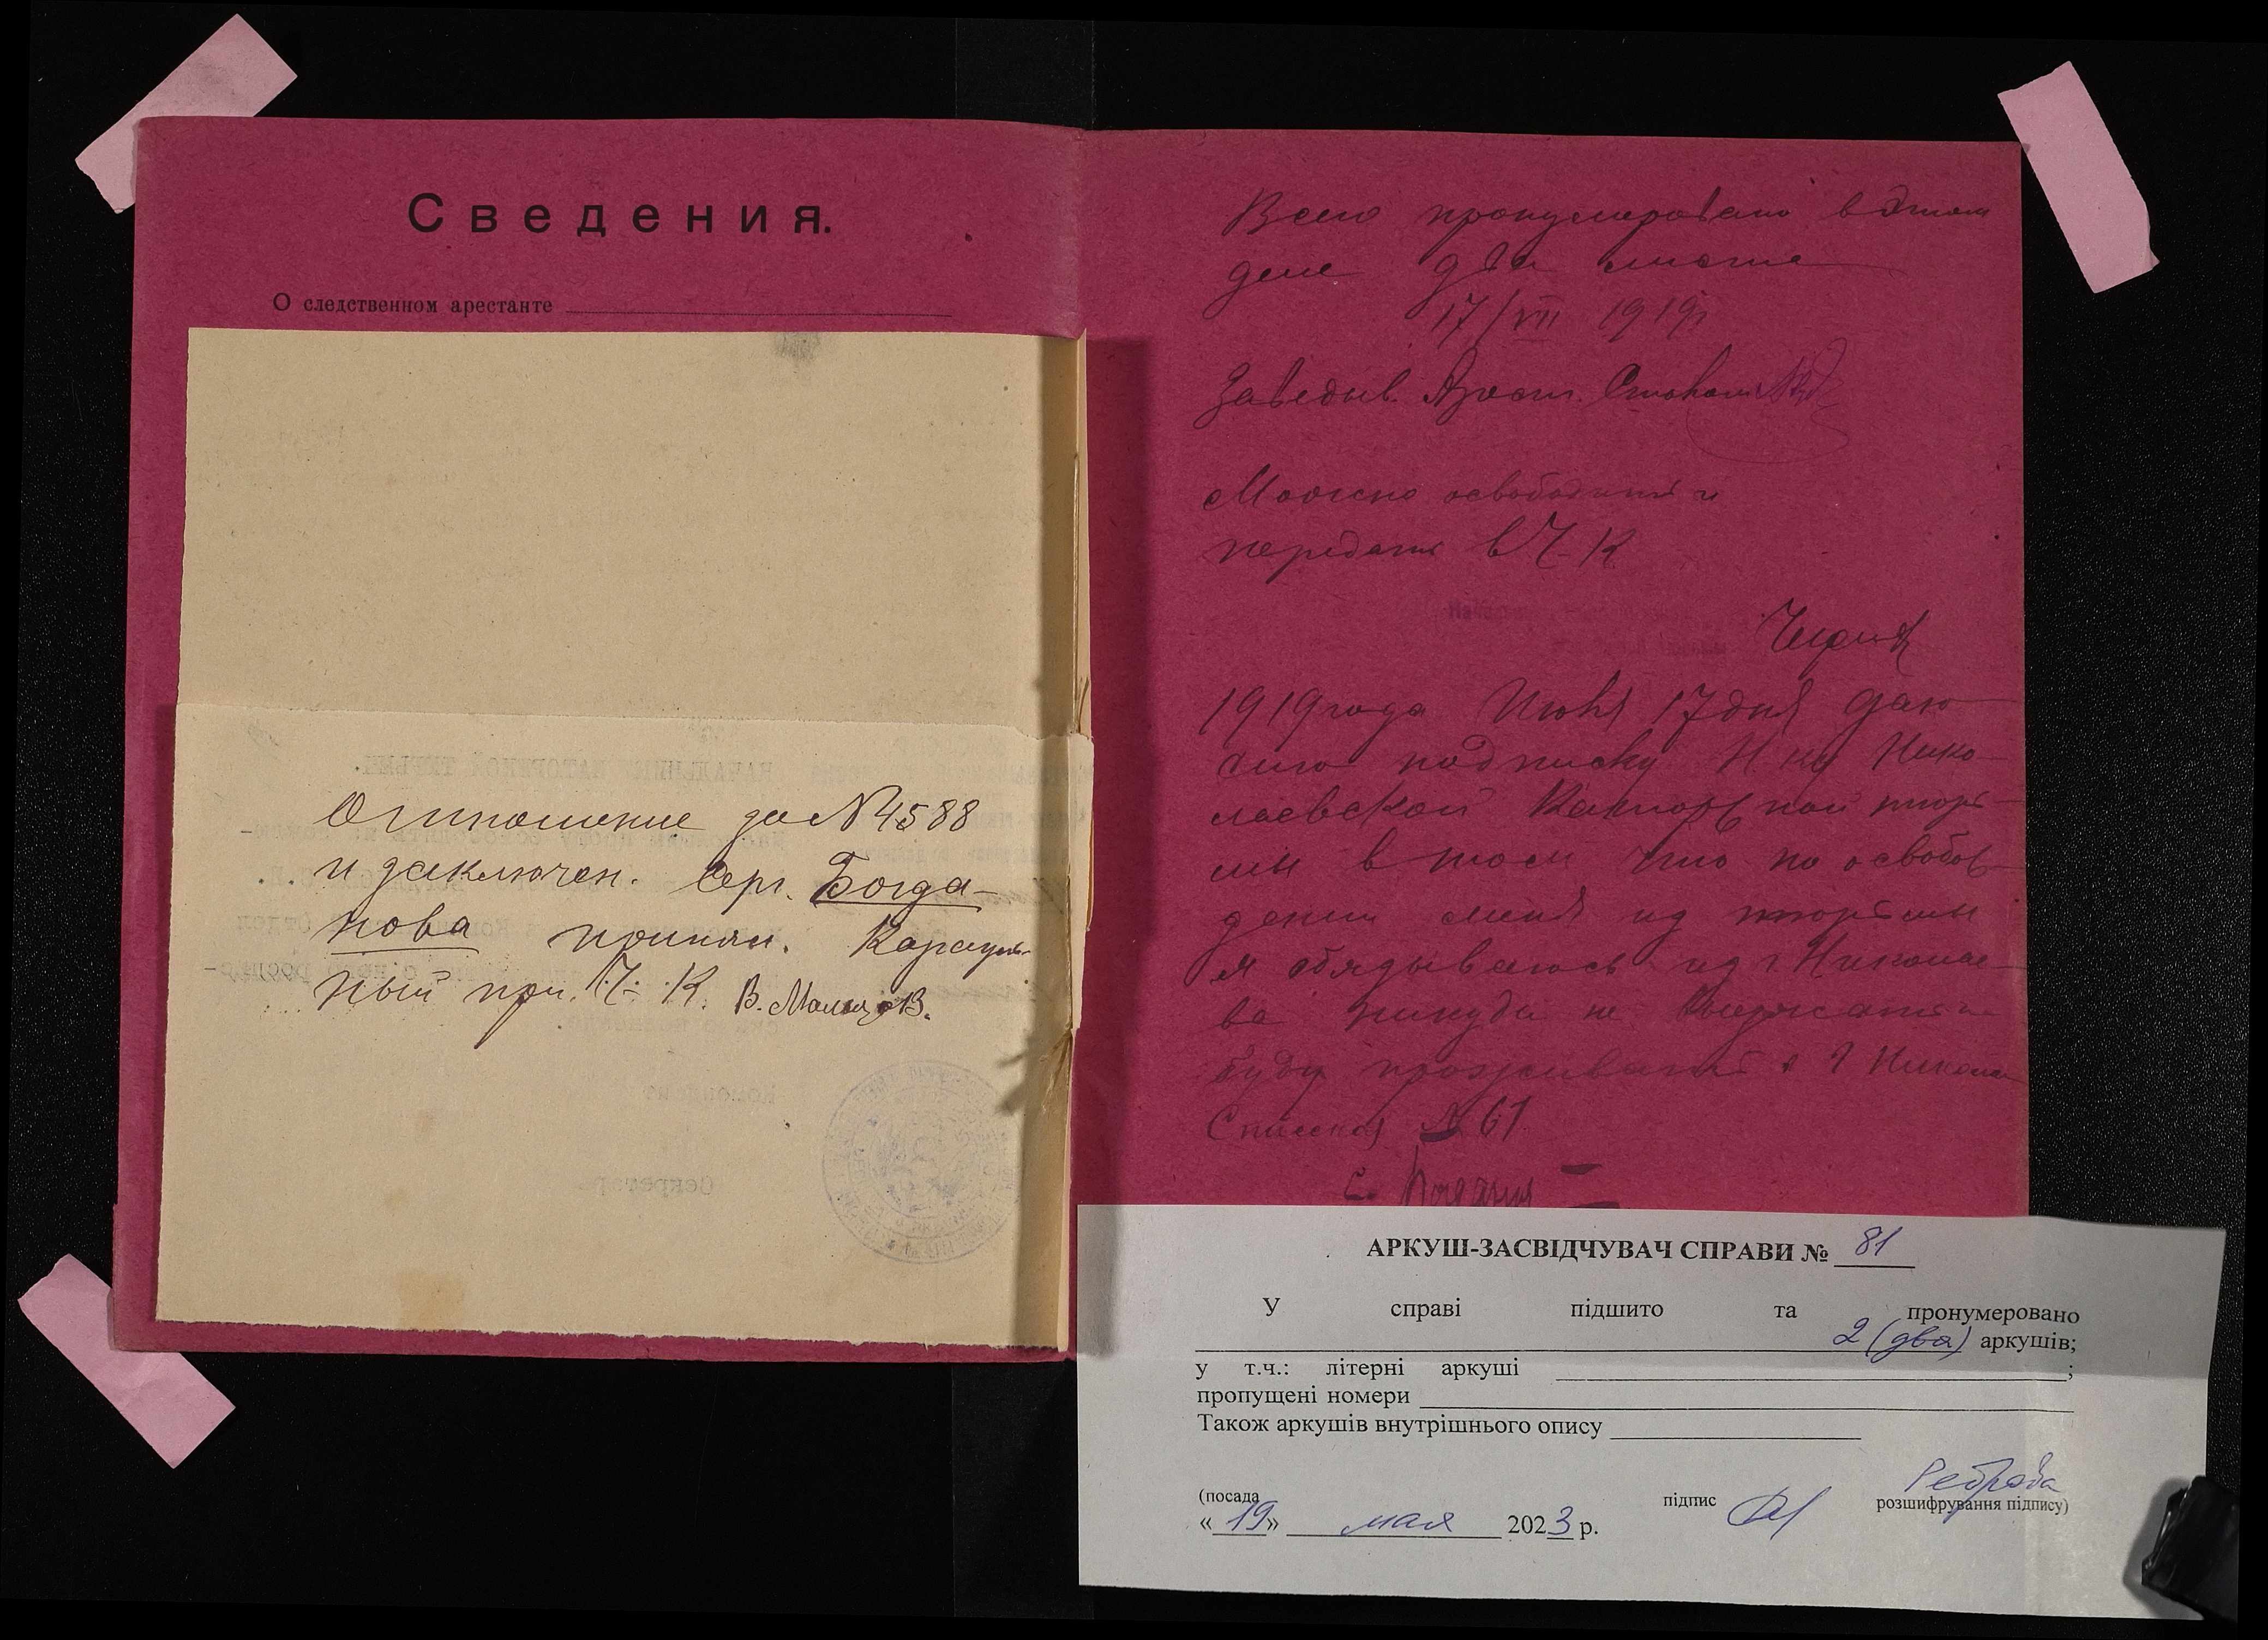 Сведения.
О следственном арестанте
Отношение за № 4588
и заключен. Серг. Богда-
нова принял. Карауль-
ный при Ч. К. В.
Всего пронумеровано в этом
деле два листа
17/VII 1919г
Заведыв. Арест.
Можно освободить и
передать в Ч-К
1919 года Июля 17 дня даю
сию подписку Н-ку Нико-
лаевской Каторжной тюрь-
мы в том что по освобож-
дении меня из тюрьмы
я обязываюсь из г. Николае-
ва никуда не выезжать и
буду проживать в г Никола
№ 61
С.
АРКУШ-ЗАСВІДЧУВАЧ СПРАВИ № 81
У справі підшито та пронумеровано
2 (два) аркушів;
у т.ч.: літерні аркуші ;
пропущені номери
Також аркушів внутрішнього опису
(посада підпис розшифрування підпису)
« 19 » мая 2023 р.
НАЧАЛЬНИКУ КАТОРЖНОЙ ТЮРЬМЫ.
Комендант
Секретарь